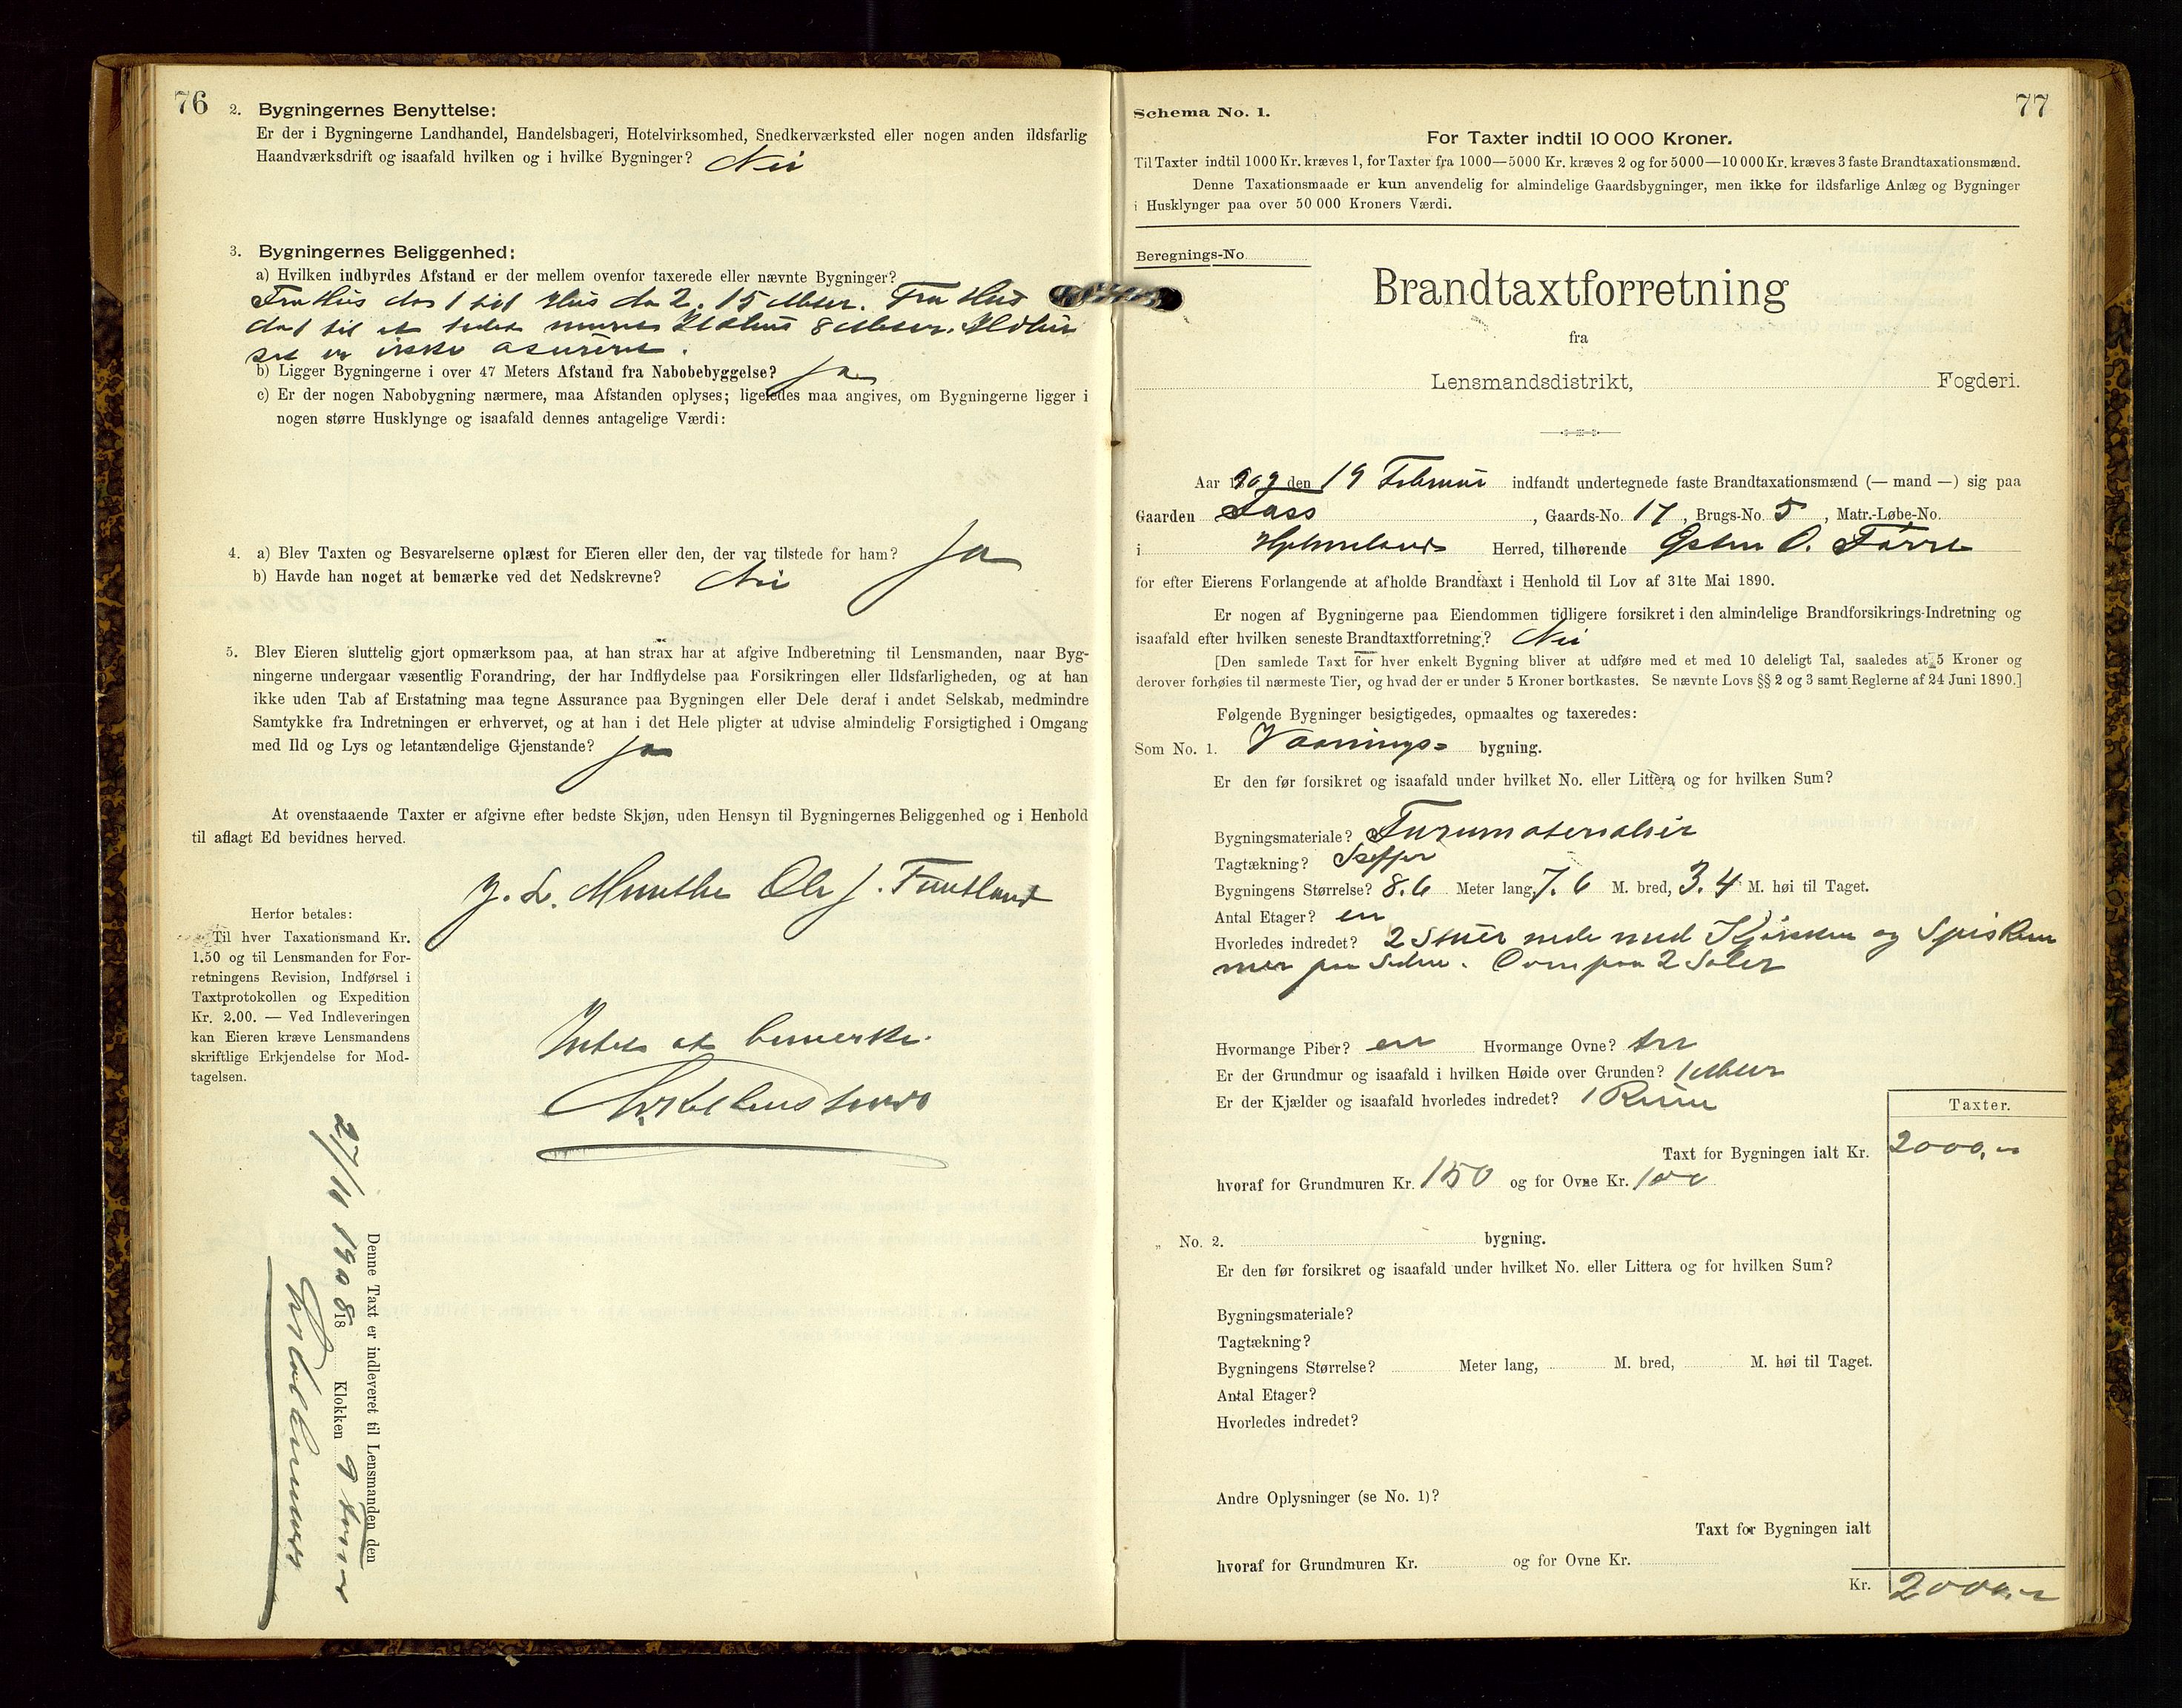 76
2. Bygningernes Benyttelse:
Er der i Bygningerne Landhandel, Handelsbageri, Hotelvirksomhed, Snedkerværksted eller nogen anden ildsfarlig
Haandværksdrift og isaafald hvilken og i hvilke Bygninger? Nei
3. Bygningernes Beliggenhed:
a) Hvilken indbyrdes Afstand er der mellem ovenfor taxerede eller nævnte Bygninger?
Fra Hus No 1 til Hus No 2. 15 Meter. Fra Hus
No 1 til et Ildhus 8 Meter. Ildhu
set er ikke asureret.
b) Ligger Bygningerne i over 47 Meters Afstand fra Nabobebyggelse? Ja
c) Er der nogen Nabobygning nærmere, maa Afstanden oplyses; ligeledes maa angives, om Bygningerne ligger i
nogen større Husklynge og isaafald dennes antagelige Værdi:
4. a) Blev Taxten og Besvarelserne oplæst for Eieren eller den, der var tilstede for ham? Ja
b) Havde han noget at bemærke ved det Nedskrevne? Nei
5. Blev Eieren sluttelig gjort opmærksom paa, at han strax har at afgive Indberetning til Lensmanden, naar Byg-
ningerne undergaar væsentlig Forandring, der har Indflydelse paa Forsikringen eller Ildsfarligheden, og at han
ikke uden Tab af Erstatning maa tegne Assurance paa Bygningen eller Dele deraf i andet Selskab, medmindre
Samtykke fra Indretningen er erhvervet, og at han i det Hele pligter at udvise almindelig Forsigtighed i Omgang
med Ild og Lys og letantændelige Gjenstande? Ja
At ovenstaaende Taxter er afgivne efter bedste Skjøn, uden Hensyn til Bygningernes Beliggenhed og i Henhold
til aflagt Ed bevidnes herved.
J. L. Munthe Ole J.
Herfor betales:
Til hver Taxationsmand Kr.
1.50 og til Lensmanden for For-
retningens Revision, Indførsel i
Taxtprotokollen og Expedition
Kr. 2.00. — Ved Indleveringen
kan Eieren kræve Lensmandens
skriftlige Erkjendelse for Mod-
tagelsen.
Intet at bemerke.
Denne Taxt er indleveret til Lensmanden den
27/11 1908 18 Klokken 9 form
77
Schema No. 1.
For Taxter indtil 10 000 Kroner.
Til Taxter indtil 1000 Kr. kræves 1, for Taxter fra 1000—5000 Kr. kræves 2 og for 5000—10 000 Kr. kræves 3 faste Brandtaxationsmænd.
Denne Taxationsmaade er kun anvendelig for almindelige Gaardsbygninger, men ikke for ildsfarlige Anlæg og Bygninger
i Husklynger paa over 50 000 Kroners Værdi.
Beregnings-No.
Brandtaxtforretning
fra
Lensmandsdistrikt, Fogderi.
Aar 1909 den 19 Februar indfandt undertegnede faste Brandtaxationsmænd (— mand —) sig paa
Gaarden , Gaards-No. 17, Brugs-No. 5, Matr.-Løbe-No.
i Hjelmeland Herred, tilhørende Østen O.
for efter Eierens Forlangende at afholde Brandtaxt i Henhold til Lov af 31te Mai 1890.
Er nogen af Bygningerne paa Eiendommen tidligere forsikret i den almindelige Brandforsikrings-Indretning og
isaafald efter hvilken seneste Brandtaxtforretning? Nei
[Den samlede Taxt for hver enkelt Bygning bliver at udføre med et med 10 deleligt Tal, saaledes at 5 Kroner og
derover forhøies til nærmeste Tier, og hvad der er under 5 Kroner bortkastes. Se nævnte Lovs §§ 2 og 3 samt Reglerne af 24 Juni 1890.]
Følgende Bygninger besigtigedes, opmaaltes og taxeredes:
Som No. 1. Vaanings- bygning.
Er den før forsikret og isaafald under hvilket No. eller Littera og for hvilken Sum?
Bygningsmateriale? Furumaterialier
Tagtækning? Skiffer
Bygningens Størrelse? 8.6 Meter lang, 7.6 M. bred, 3.4 M. høi til Taget.
Antal Etager? en
Hvorledes indredet? 2 Stuer nede med Kjøkken og Spiskam
mer paa Siden. Ovenpaa 2 Saler
Hvormange Piber? en Hvormange Ovne? tre
Er der Grundmur og isaafald i hvilken Høide over Grunden? 1 Meter
Er der Kjælder og isaafald hvorledes indredet? 1 Rum
Taxter.
Taxt for Bygningen ialt Kr. 2000,-
hvoraf for Grundmuren Kr. 150 og for Ovne Kr. 100
„ No. 2. bygning.
Er den før forsikret og isaafald under hvilket No. eller Littera og for hvilken Sum?
Bygningsmateriale?
Tagtækning?
Bygningens Størrelse? Meter lang, M. bred, M. høi til Taget.
Antal Etager?
Hvorledes indredet?
Andre Oplysninger (se No. 1)?
Taxt for Bygningen ialt
hvoraf for Grundmuren Kr. og for Ovne Kr.
Kr. 2000,-